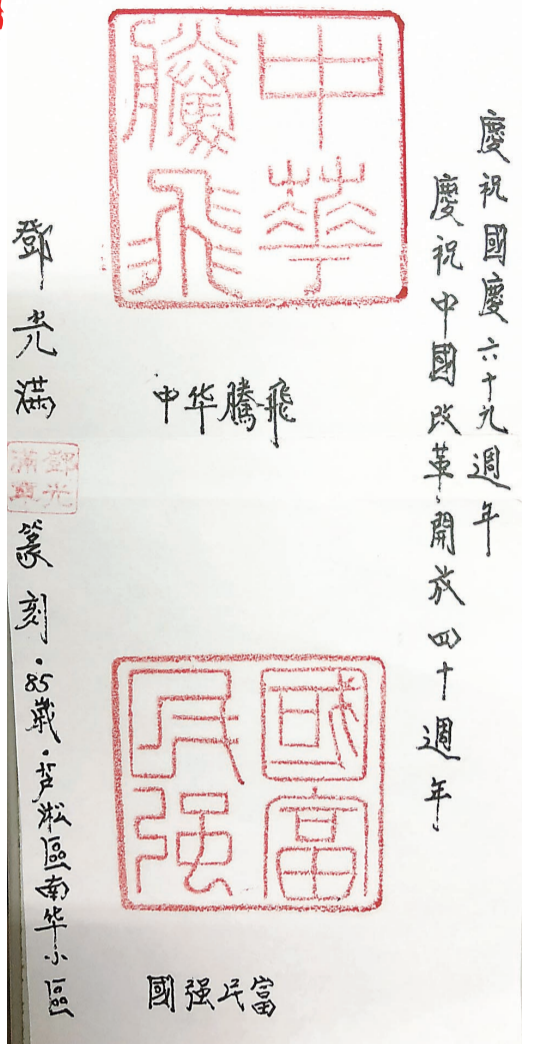 慶祝國慶六十九週年
慶祝中國改革開放四十週年
中華
騰飛
中华騰飛
國富
民强
國强民富
鄧光滿
鄧光
滿章
篆刻·85歲·芦淞區南华小區